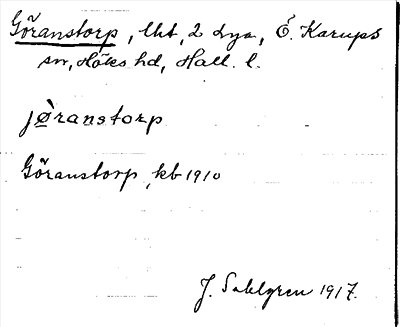 Göranstorp, lht, 2 lya, Ö. Karups
sn, Höks hd, Hall. l.
jø̀ranstorp
Göranstorp, kb 1910
J. Sahlgren 1917.